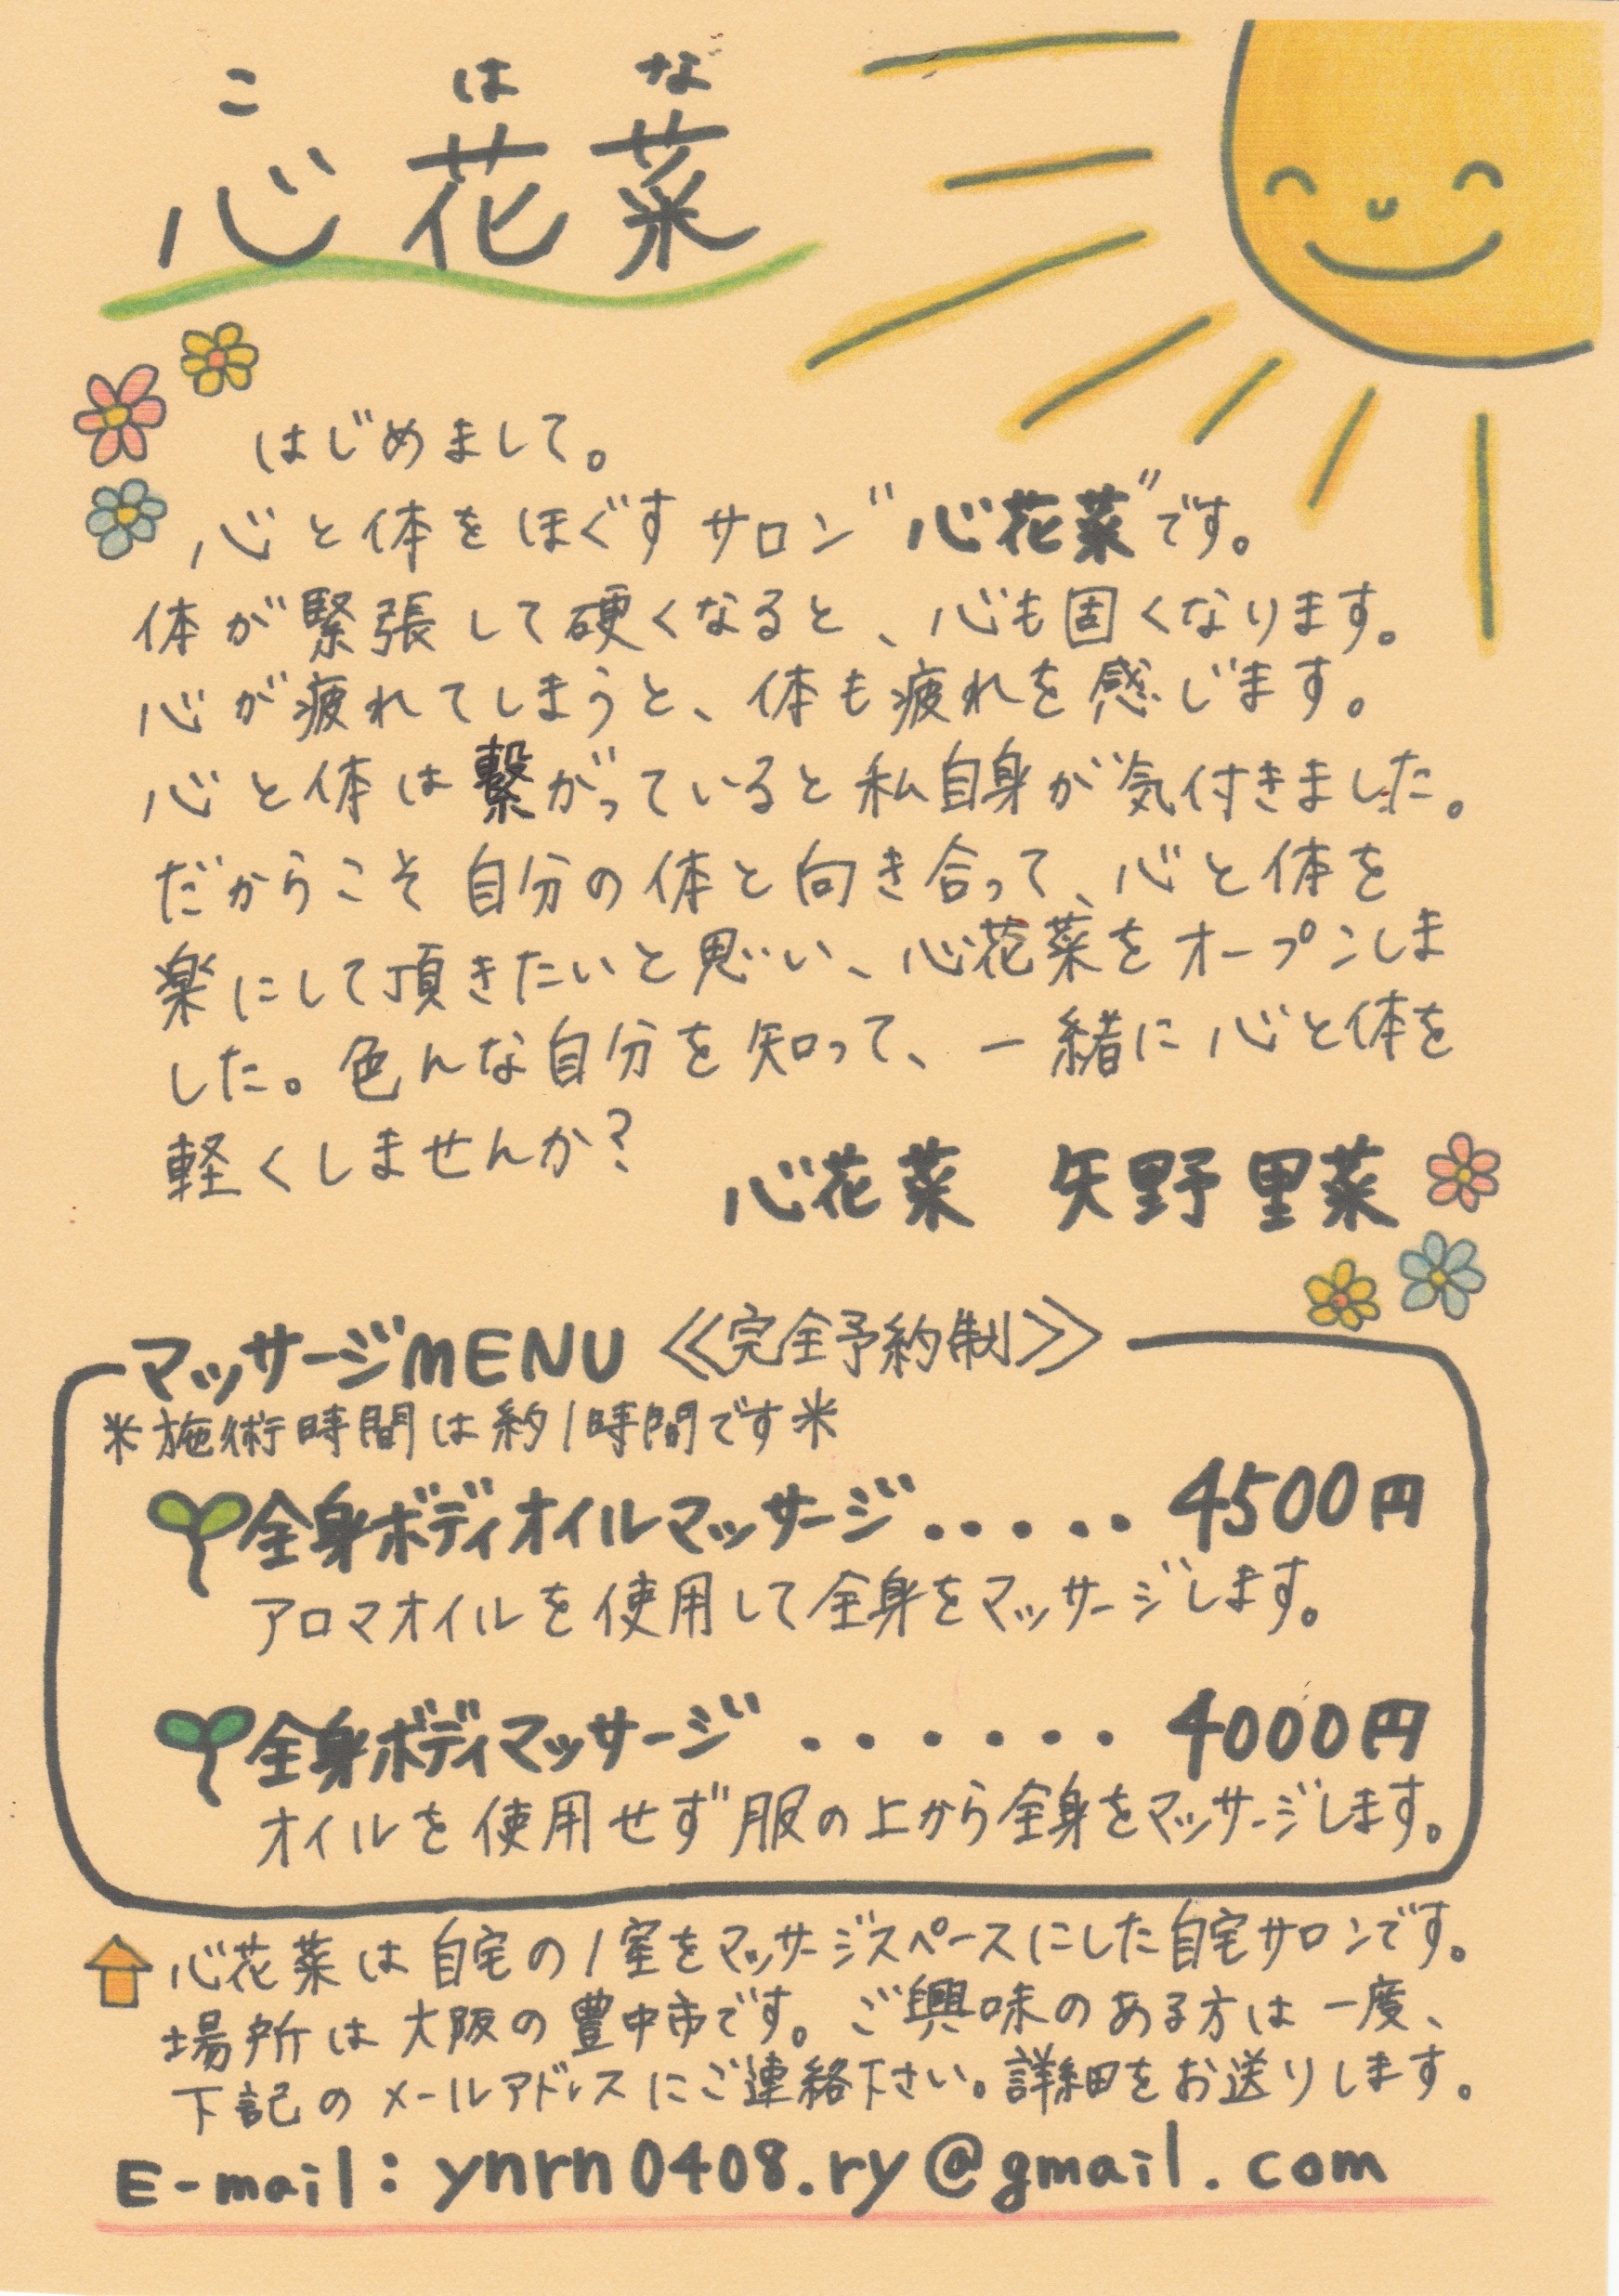 こはな
心花菜
はじめまして。
心と体をほぐすサロン"心花菜"です。
体が緊張して硬くなると、心も固くなります。
心が疲れてしまうと、体も疲れを感じます。
心と体は繋がっていると私自身が気付きました。
だからこそ自分の体と向き合って、心と体を
楽にして頂きたいと思い、心花菜をオープンしま
した。色んな自分を知って、一緒に心と体を
軽くしませんか?
心花菜 矢野里菜
マッサージMENU ≪完全予約制≫
*施術時間は約1時間です*
全身ボディオイルマッサージ・・・・・4500円
アロマオイルを使用して全身をマッサージします。
全身ボディマッサージ・・・・・・4000円
オイルを使用せず服の上から全身をマッサージします。
心花菜は自宅の1室をマッサージスペースにした自宅サロンです。
場所は大阪の豊中市です。ご興味のある方は一度、
下記のメールアドレスにご連絡下さい。詳細をお送りします。
E-mail:ynrn0408.ry@gmail.com